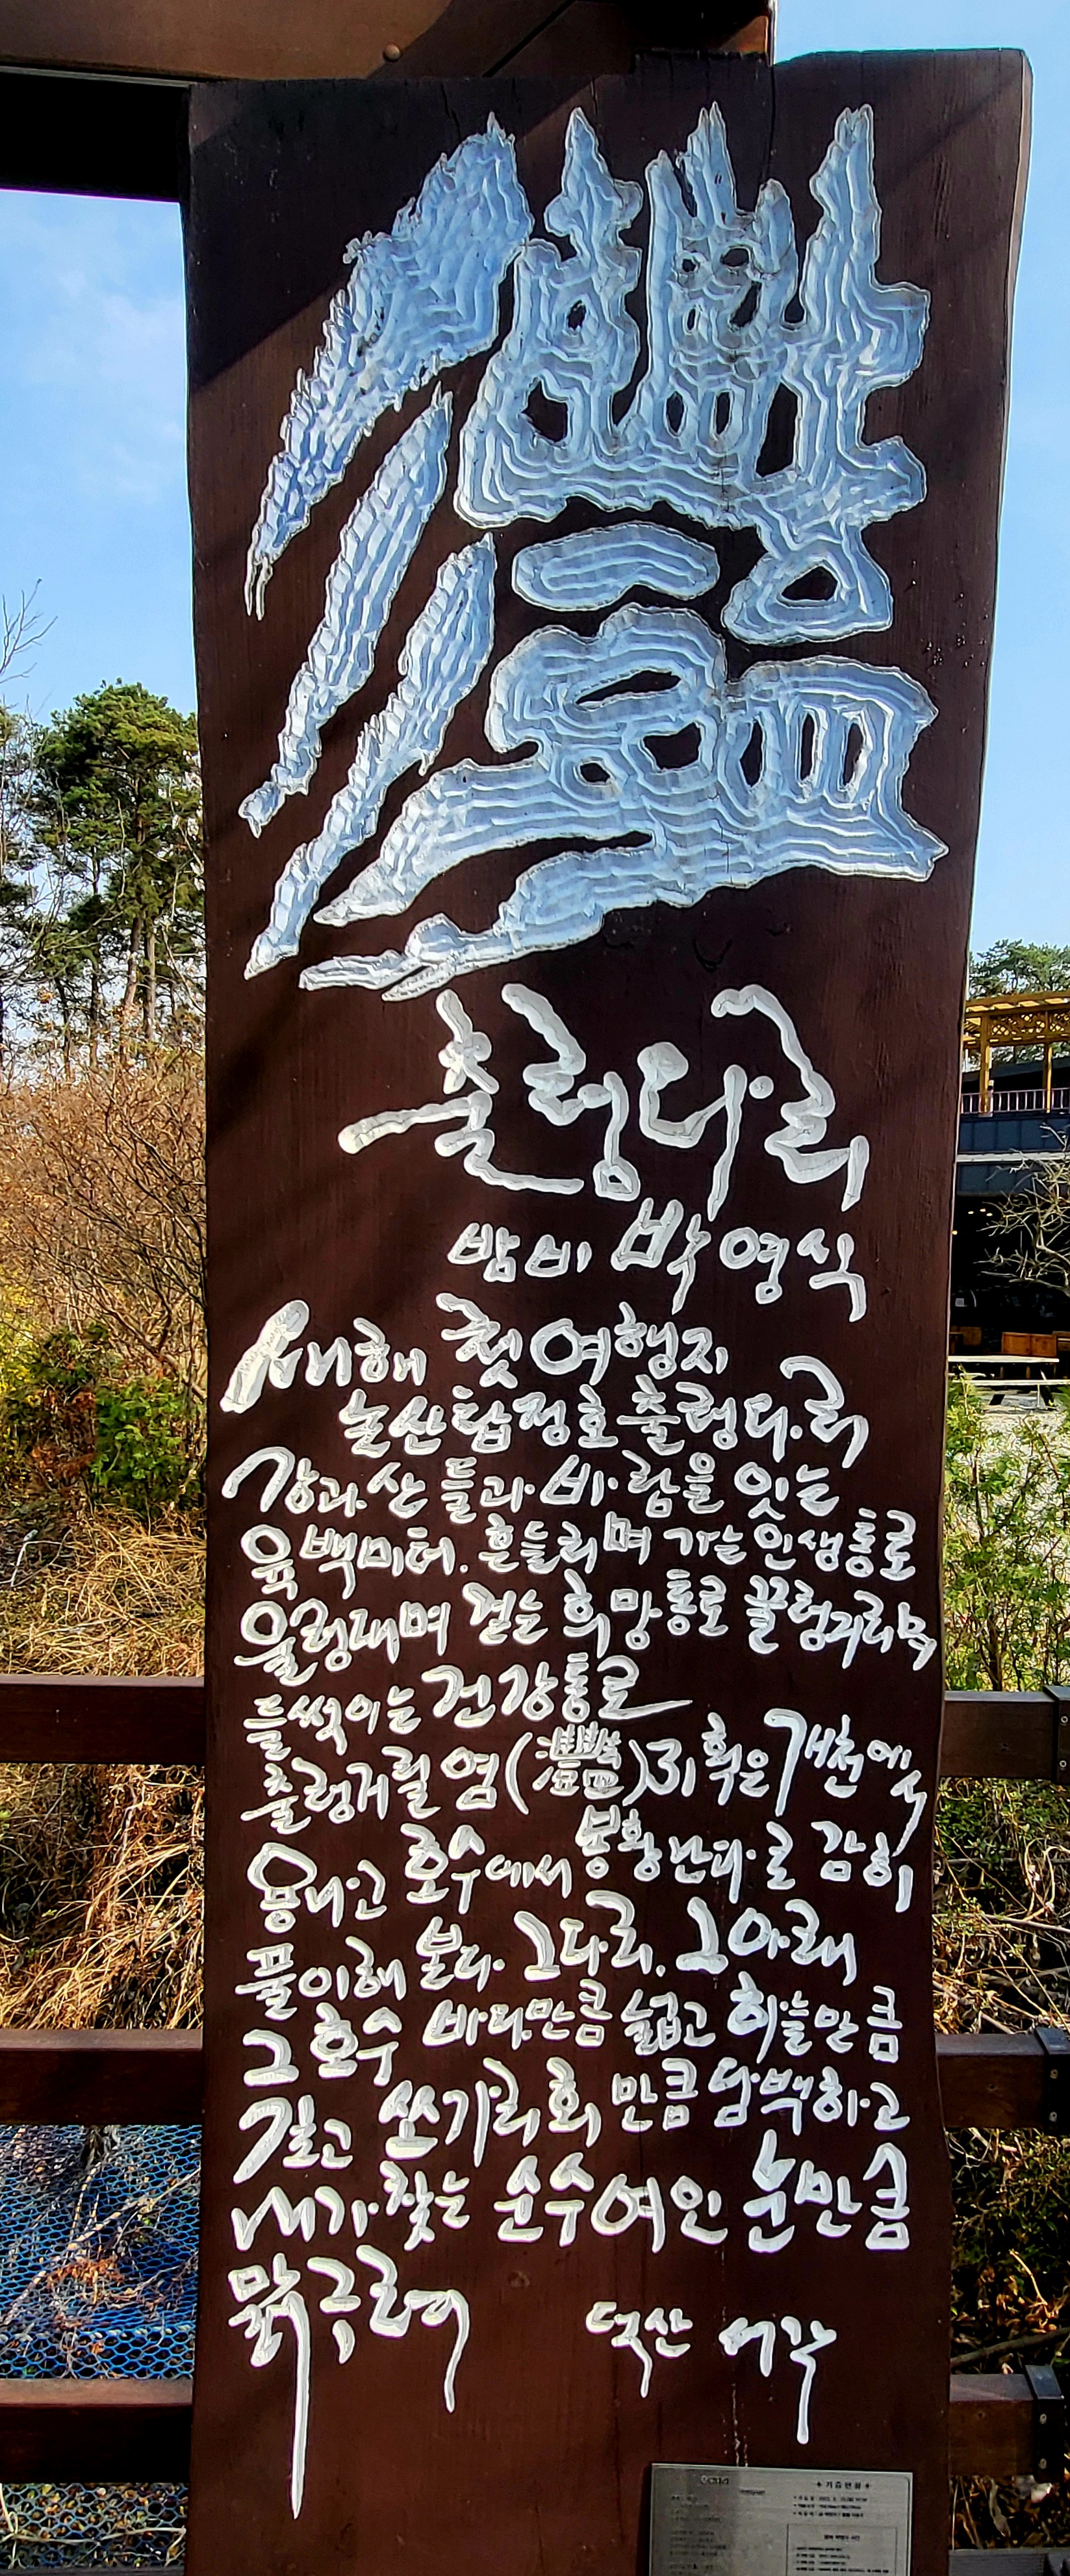 灩
출렁다리
밤비 박영식
새해 첫 여행지
논산탑정호 출렁다리
강과 산 들과 바람을 잇는
육백미터. 흔들리며 가는 인생통로
울렁대며 걷는 희망통로 꿀렁거리며
들썩이는 건강통로
출렁거릴 염(灩)31획은 개천에서
용나고 호수에서 봉황난다로 감히
풀이해 본다. 그다리. 그아래
그 호수 바다만큼 넓고 하늘만큼
깊고 쏘가리 회 만큼 담백하고
내가 찾는 순수여인 눈만큼
맑구려
덕산 서각
기증현황